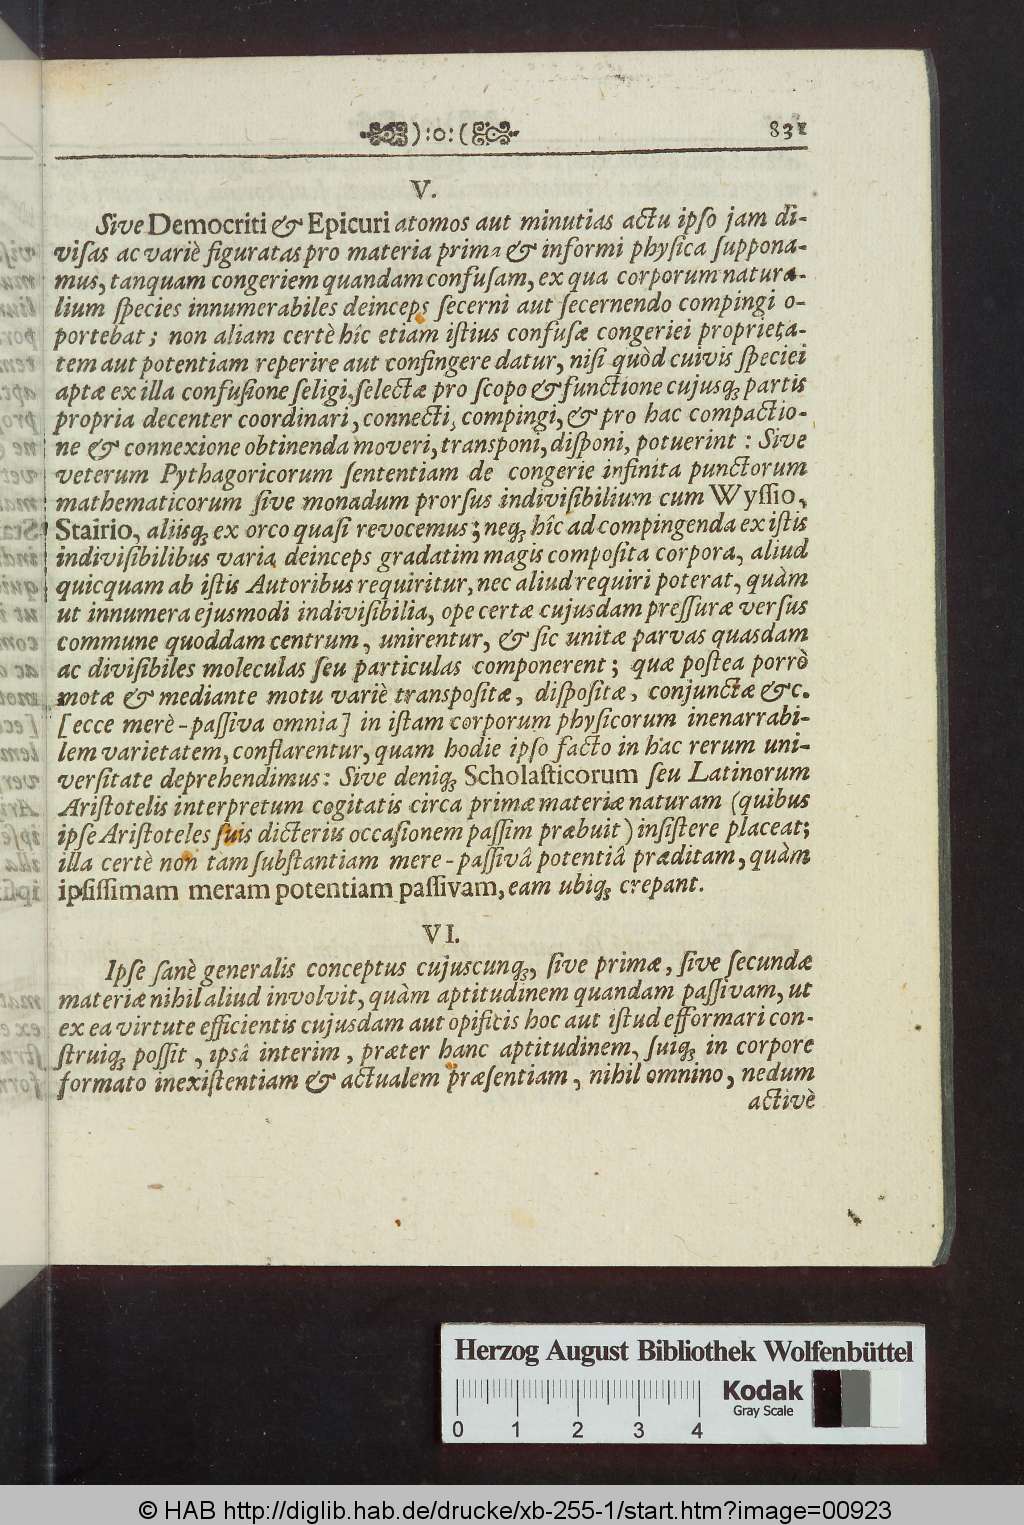 ):o:( 831
V.
Sive Democriti & Epicuri atomos aut minutias actu ipso jam di-
visas ac variè figuratas pro materia prima & informi physica suppona-
mus, tanquam congeriem quandam confusam, ex qua corporum natura-
lium species innumerabiles deinceps secerni aut secernendo compingi o-
portebat; non aliam certè hîc etiam istius confusæ congeriei proprieta-
tem aut potentiam reperire aut confingere datur, nisi quòd cuivis speciei
aptæ ex illa confusione seligi, selectæ pro scopo & functione cujusq; partis
propria decenter coordinari, connecti, compingi, & pro hac compactio-
ne & connexione obtinenda moveri, transponi, disponi, potuerint: Sive
veterum Pythagoricorum sententiam de congerie infinita punctorum
mathematicorum sive monadum prorsus indivisibilium cum Wyssio,
Stairio, aliisq; ex orco quasi revocemus; neq; hîc ad compingenda ex istis
indivisibilibus varia deinceps gradatim magis composita corpora, aliud
quicquam ab istis Autoribus requiritur, nec aliud requiri poterat, quàm
ut innumera ejusmodi indivisibilia, ope certæ cujusdam pressuræ versus
commune quoddam centrum, unirentur, & sic unitæ parvas quasdam
ac divisibiles moleculas seu particulas componerent; quæ postea porrò
motæ & mediante motu variè transpositæ, dispositæ, conjunctæ &c.
[ecce merè-passiva omnia] in istam corporum physicorum inenarrabi-
lem varietatem, conflarentur, quam hodie ipso facto in hac rerum uni-
versitate deprehendimus: Sive deniq; Scholasticorum seu Latinorum
Aristotelis interpretum cogitatis circa primæ materiæ naturam (quibus
ipse Aristoteles suis dicteriis occasionem passim præbuit) insistere placeat;
illa certè non tam substantiam mere-passivâ potentiâ præditam, quàm
ipsissimam meram potentiam passivam, eam ubiq; crepant.
VI.
Ipse sanè generalis conceptus cujuscunq;, sive primæ, sive secundæ
materiæ nihil aliud involvit, quàm aptitudinem quandam passivam, ut
ex ea virtute efficientis cujusdam aut opificis hoc aut istud efformari con-
struiq; possit, ipsâ interim, præter hanc aptitudinem, suiq; in corpore
formato inexistentiam & actualem præsentiam, nihil omnino, nedum
activè
Herzog August Bibliothek Wolfenbüttel
0 1 2 3 4
Kodak
Gray Scale
© HAB http://diglib.hab.de/drucke/xb-255-1/start.htm?image=00923